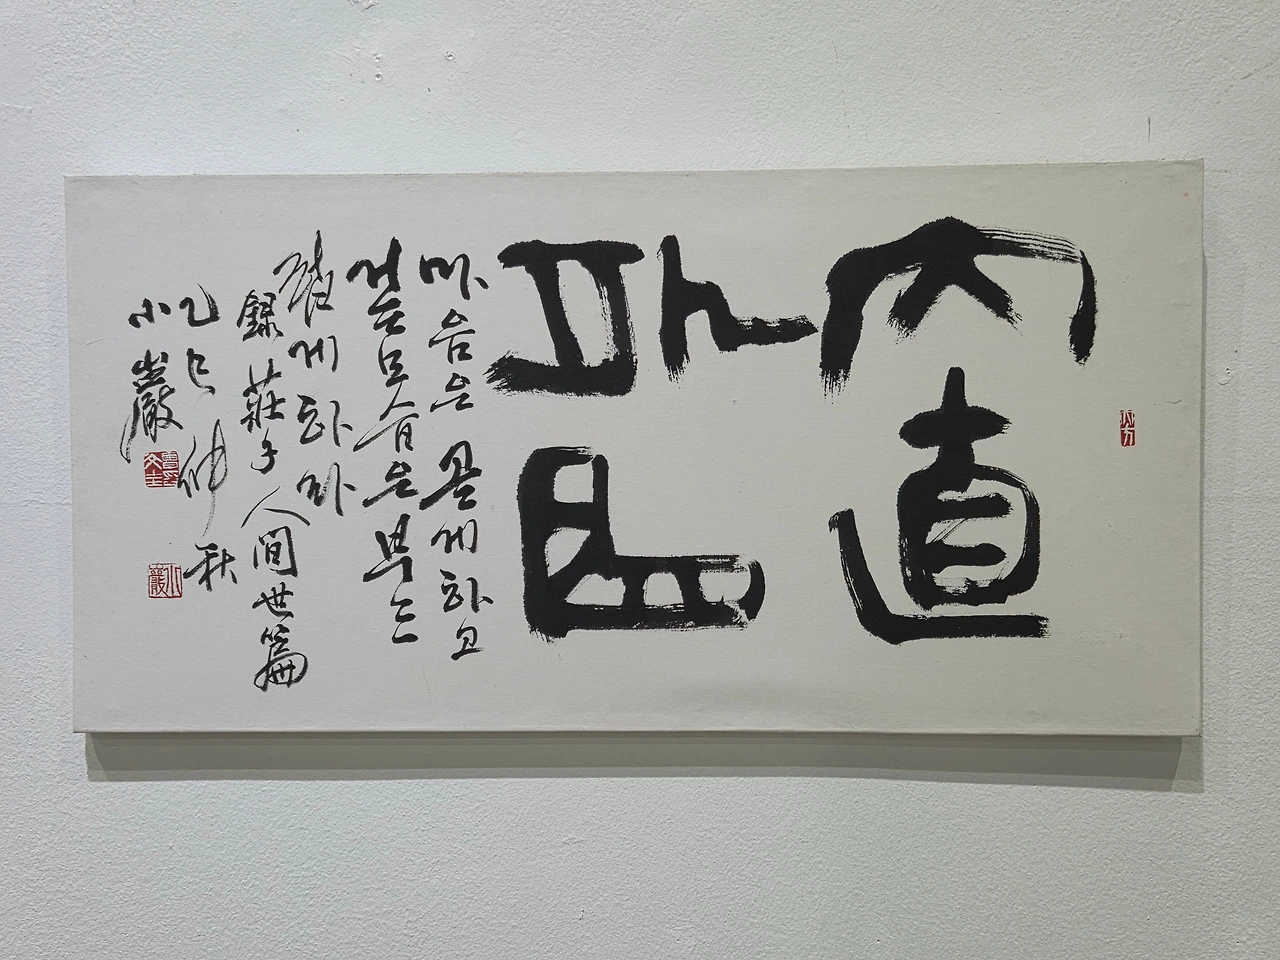 內直
外曲
마음은곧게하고
겉모습은부드
럽게하라
錄莊子人間世篇
乙巳仲秋
小巖